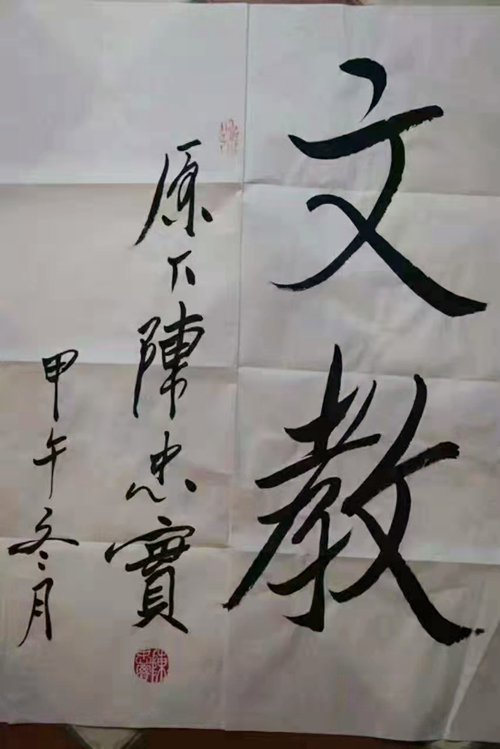 文教
原下陳忠實
甲午冬月